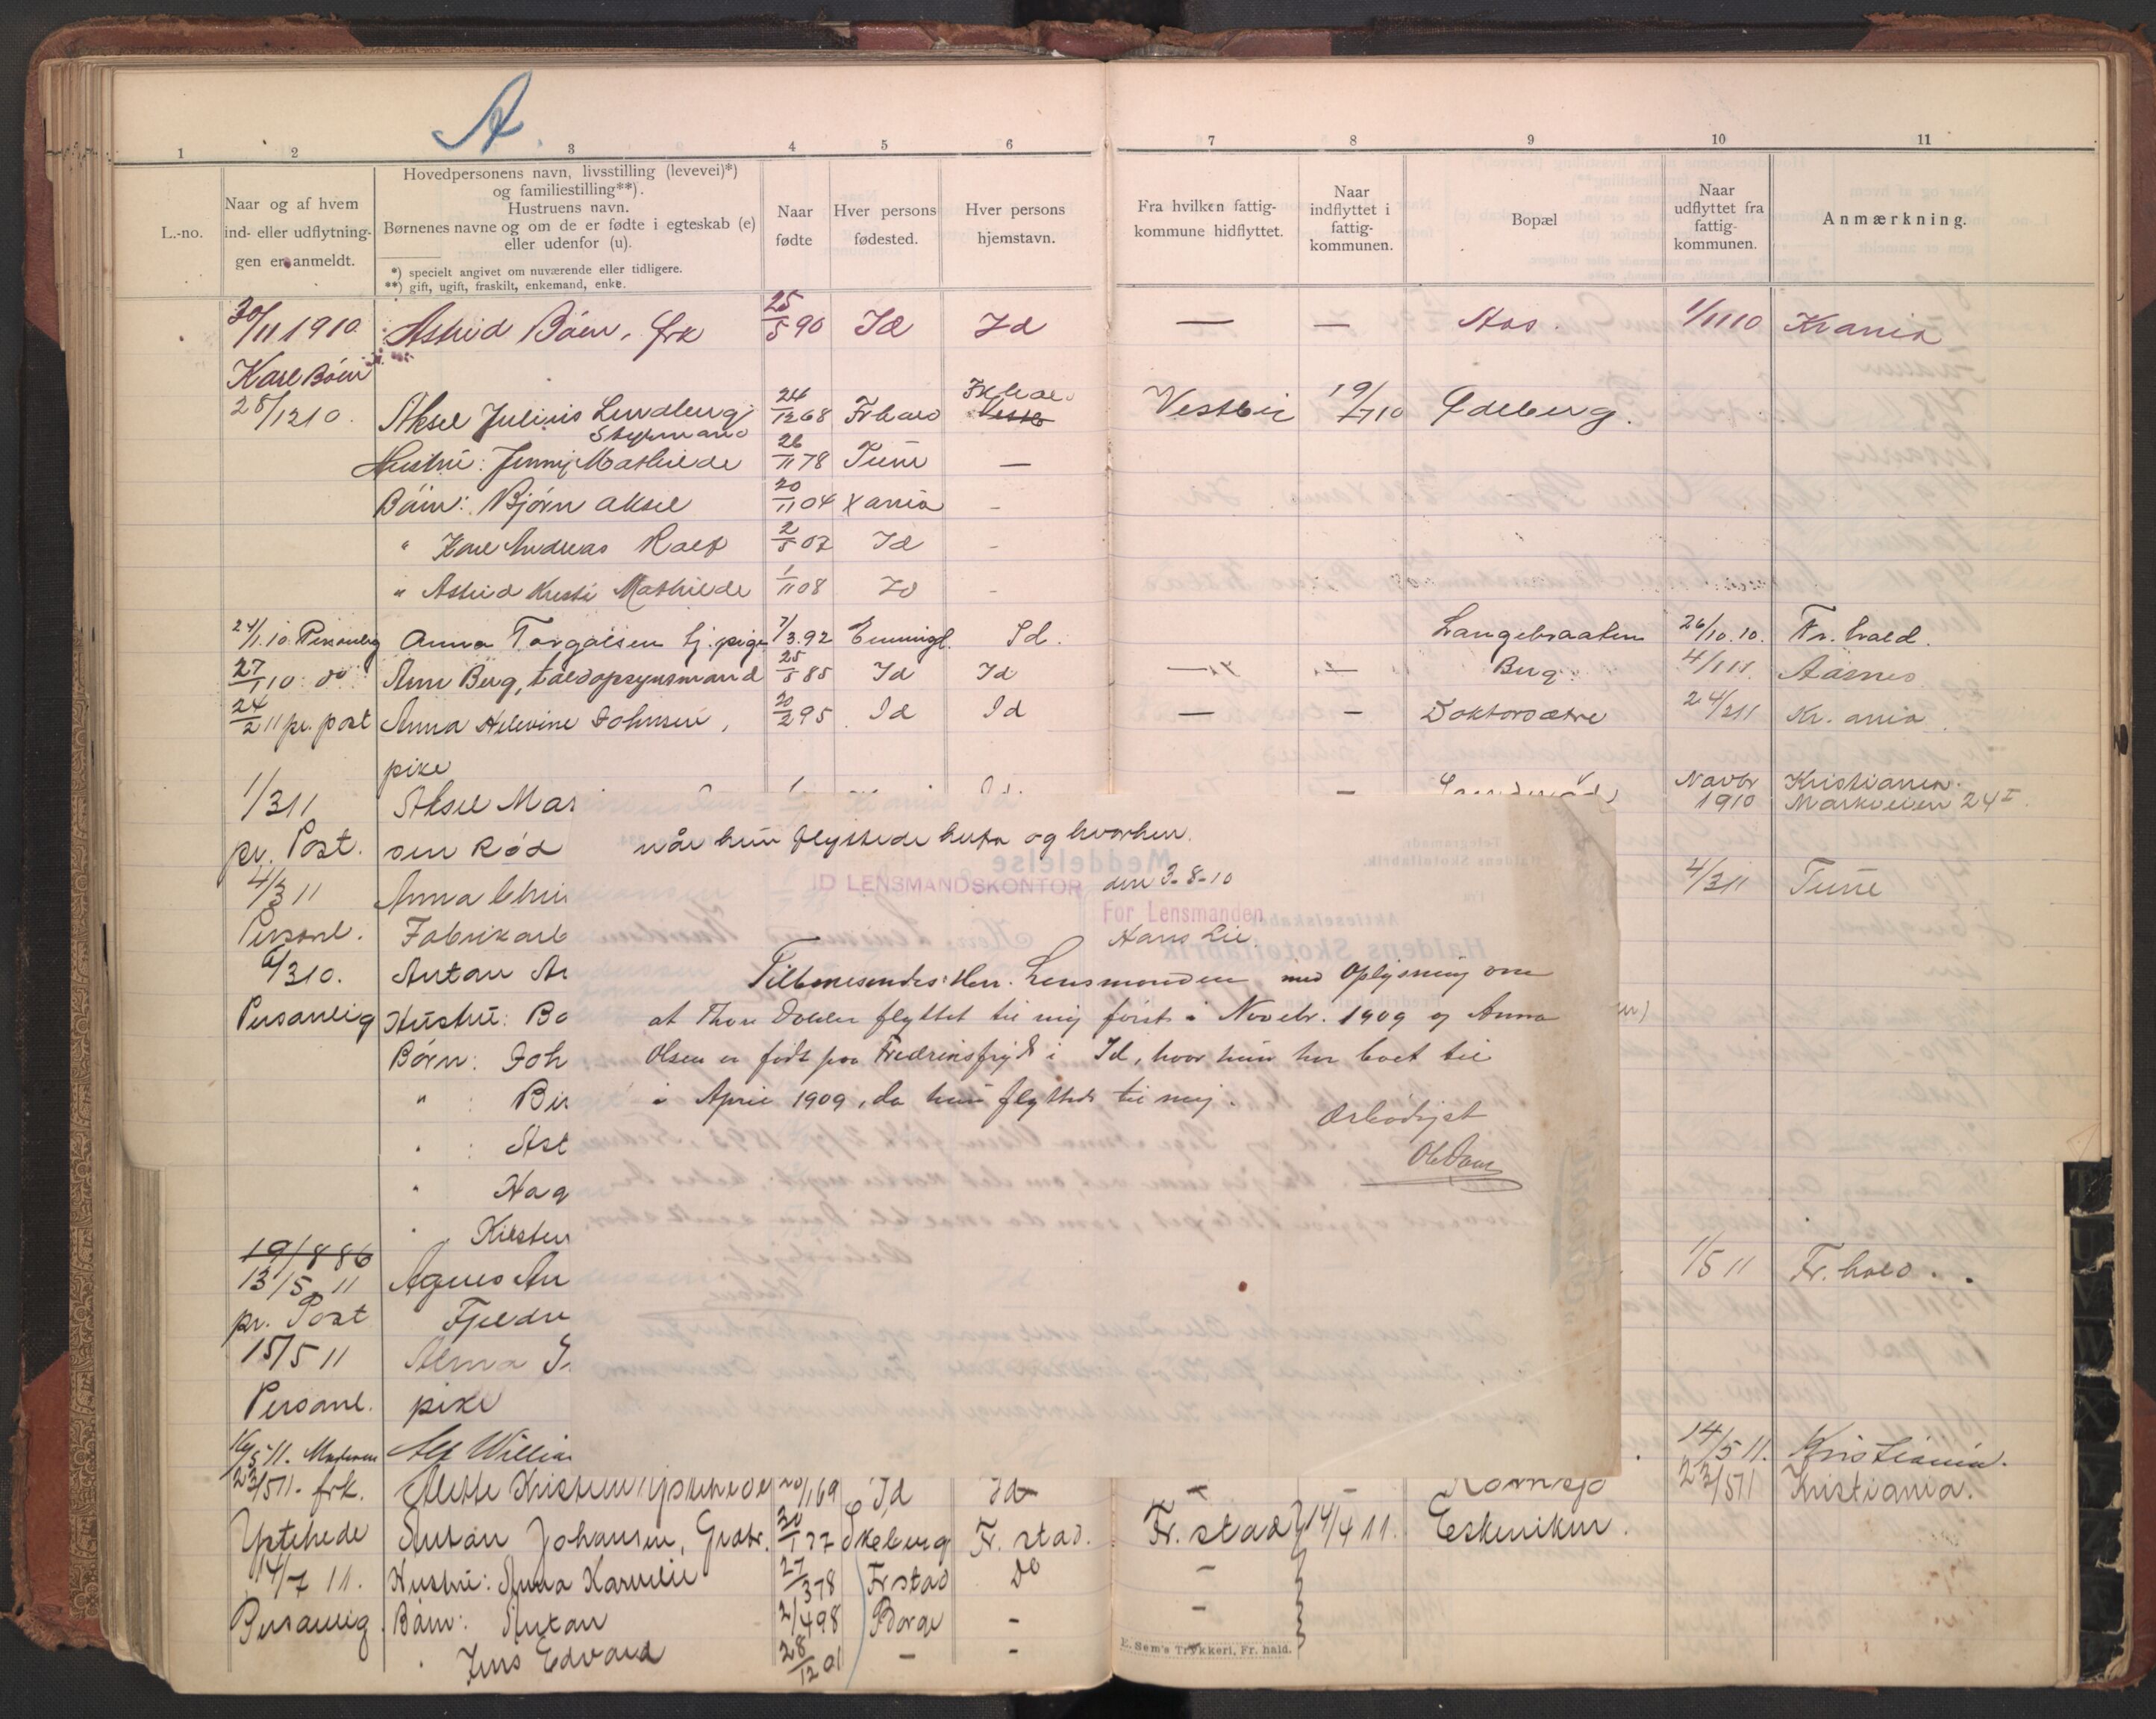 A.
1 2 3 4 5 6 7 8 9 10 11
L.-no.
Naar og af hvem
ind- eller udflytnin-
gen er anmeldt.
Hovedpersonens navn, livsstilling (levevei)*)
og familiestilling**).
Hustruens navn.
Børnenes navne og om de er fødte i egteskab (e)
eller udenfor (u).
*) specielt angivet om nuværende eller tidligere.
**) gift, ugift, fraskilt, enkemand, enke.
Naar
fødte
Hver persons
fødested.
Hver persons
hjemstavn.
Fra hvilken fattig-
kommune hidflyttet.
Naar
indflyttet i
fattig-
kommunen.
Bopæl
Naar
udflyttet fra
fattig-
kommunen.
Anmærkning.
30/11 1910. Astrid Böen, frk 25/5 90 Id Id — — Aas. 1/11 10 Krania
Karl Böen
28/12 10. Aksel Julius Lundberg 24/12 68 Frhald Frhald Vestbi 19/7 10 Edeberg.
Styrmand
Hustru: Jenny Mathilde 26/11 78 Tune —
Börn: Bjørn Aksel 20/11 04 Xania -
" Karl Andreas Rolf 2/5 07 Id -
" Astrid Kristi Mathilde 1/11 08 Id -
24/1.10. Personlig Anna Torgalsen tj. pige 7/3.92 Enningd. Id. Langebraaten 26/10.10. Fr.hald.
27/1 10 do Arn Berg, toldopsynsmand 25/5 85 Id Id — — Berg. 4/1 11. Aasnes
24/2 11 pr. post Anna Helevine Johnsen, 20/2 95 Id Id — — Doktorsætre 24/2 11 Kr.ania
pike
1/3 11 Aksel Mar — Novbr Kristiania.
1910 Markveien 24 I.
pr. Post. sen Rød
4/3 11 Anna Chri 4/3 11 Tune
Personl. Fabrikarb
6/3 10. Anton An
Personlig Hustru: Bo
Börn: Joh
" Bir
" Ast
" Hag
" Kirsten
19/8 86
13/5 11 Agnes An 1/5 11 Fr.hald.
pr. Post Fjeldn
15/5 11 Alma
Personl. pike
16/5 11. Alf Willia 14/5 11. Kristiania.
23/5 11. frk. Alette Kristine Ystehede 20/1 69 Id Id — — Kornsjø 23/5 11 Kristiania.
Ystehede Anton Johansen, 30/1 77 Skeberg Fr.stad. Fr.stad 14/4 11. Eskeviken.
14/7 11. Hustru: Anna Karoline 27/3 78 Frstad do -
Personlig Börn: Anton 2/4 98 Borge - -
" Jens Edvard 28/12 01 — - -
E. Sem's Trykkeri, Fr. hald.
når hun flyttede herfra og hvorhen.
ID LENSMANDSKONTOR den 3-8-10
For Lensmanden
Hans Lie.
Tilbagesendes Herr. Lensmanden med Oplysning om
at Thora flyttet til mig först i Novebr. 1909 og Anna
Olsen er født paa Fredriksfryd i Id, hvor hun har boet til
i April 1909, da hun flyttede til mig.
Ærbødigst